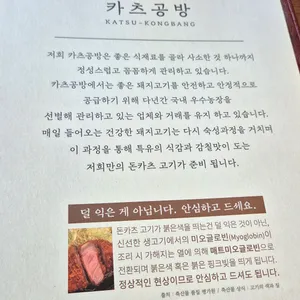 카츠공방
KATSU-KONGBANG
저희 카츠공방은 좋은 식재료를 골라 사소한 것 하나까지
정성스럽고 꼼꼼하게 관리하고 있습니다.
카츠공방에서는 좋은 돼지고기를 안전하고 안정적으로
공급하기 위해 다년간 국내 우수농장을
선별해 관리하고 있는 업체와 거래를 유지 하고 있습니다.
매일 들어오는 건강한 돼지고기는 다시 숙성과정을 거치며
이 과정을 통해 특유의 식감과 감칠맛이 도는
저희만의 돈카츠 고기가 준비 됩니다.
덜 익은 게 아닙니다. 안심하고 드세요.
돈카츠 고기가 붉은색을 띄는건 덜 익은 것이 아닌,
신선한 생고기에서의 미오글로빈(Myoglobin)이
조리 시 가해지는 열에 의해 메트미오글로빈으로
전환되며 붉은색 혹은 붉은 핑크빛을 띄게 됩니다.
정상적인 현상이므로 안심하고 드셔도 됩니다.
출처 : 축산물 품질 평가원 / 축산물 상식 : 고기의 색과 질